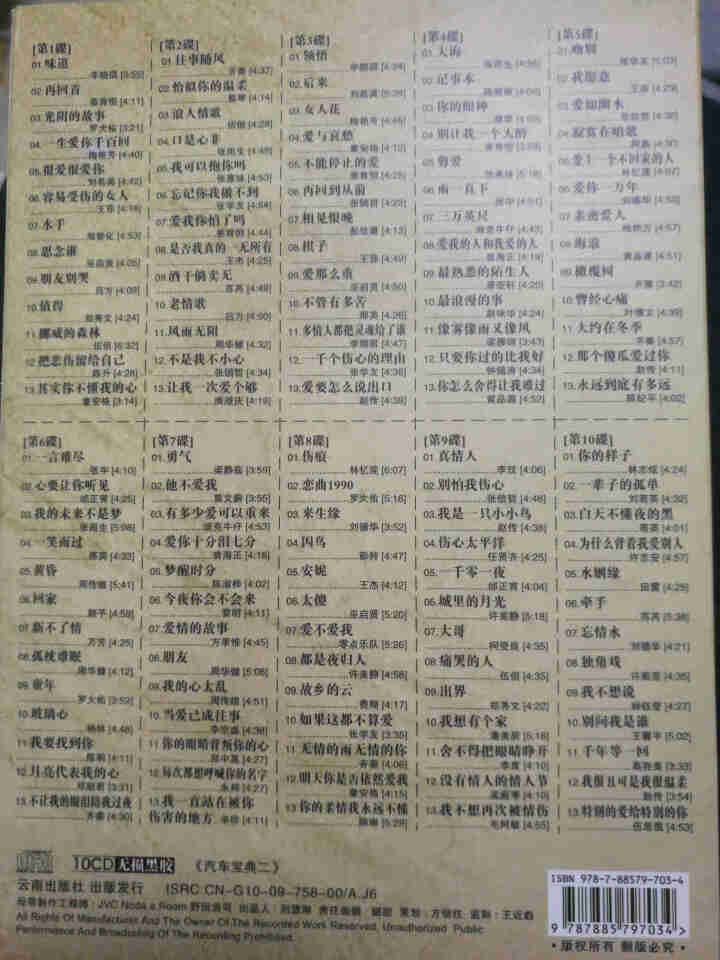 [第1碟]
01.味道
辛晓琪 [3:55]
02.再回首
姜育恒 [4:11]
03.光阴的故事
罗大佑 [3:21]
04.一生爱你千百回
梅艳芳 [4:40]
05.很爱很爱你
刘若英 [4:42]
06.容易受伤的女人
王菲
07.水手
郑智化 [4:53]
08.思念谁
09.朋友别哭
吕方 [4:09]
10.值得
郑秀文 [4:24]
11.挪威的森林
伍佰 [6:32]
12.把悲伤留给自己
陈升 [4:28]
13.其实你不懂我的心
童安格 [3:14]
[第2碟]
01.往事随风
齐秦 [4:37]
02.恰似你的温柔
蔡琴 [4:14]
03.浪人情歌
伍佰 [4:28]
04.口是心非
张雨生 [4:48]
05.我可以抱你吗
张惠妹 [4:50]
06.忘记你我做不到
张学友
07.爱我你怕了吗
[4:44]
08.是否我真的一无所有
王杰 [4:25]
09.酒干倘卖无
苏芮 [4:49]
10.老情歌
吕方 [4:50]
11.风雨无阻
周华健 [4:32]
12.不是我不小心
张镐哲 [4:34]
13.让我一次爱个够
庾澄庆 [4:19]
[第3碟]
01.领悟
02.后来
刘若英
03.女人花
梅艳芳 [4:45]
04.爱与哀愁
童安格 [4:12]
05.不能停止的爱
06.再回到从前
张镐哲
07.相见恨晚
彭佳慧
08.棋子
王菲 [4:49]
09.爱那么重
巫启贤
10.不管有多苦
那英 [4:26]
11.多情人都把灵魂给了谁
12.一千个伤心的理由
张学友 [4:36]
13.爱要怎么说出口
赵传 [4:39]
[第4碟]
01.大海
张雨生
02.记事本
03.你的眼神
蔡琴
04.别让我一个人醉
05.剪爱
张惠妹
06.雨一直下
张宇 [4:51]
07.三万英尺
迪克牛仔 [4:43]
08.爱我的人和我爱的人
09.最熟悉的陌生人
10.最浪漫的事
赵咏华 [4:24]
11.像雾像雨又像风
12.只要你过的比我好
钟镇涛 [4:34]
13.你怎么舍得让我难过
黄品源 [4:52]
[第5碟]
01.吻别
张学友 [5:03]
02.我愿意
王菲
03.爱如潮水
04.寂寞在唱歌
05.爱上一个不回家的人
林忆莲
06.爱你一万年
刘德华
07.亲密爱人
梅艳芳 [4:57]
08.海浪
黄品源 [4:51]
09.橄榄树
齐豫 [3:42]
10.曾经心痛
叶倩文 [4:39]
11.大约在冬季
齐秦 [4:57]
12.那个傻瓜爱过你
赵传 [4:11]
13.永远到底有多远
[4:02]
[第6碟]
01.一言难尽
张宇 [4:10]
02.心要让你听见
邰正宵 [4:25]
03.我的未来不是梦
张雨生 [5:08]
04.一笑而过
那英 [4:33]
05.黄昏
周传雄 [5:41]
06.回家
顺子 [4:59]
07.新不了情
万芳 [4:25]
08.孤枕难眠
周华健 [4:12]
09.童年
罗大佑 [3:52]
10.玻璃心
杨林 [4:48]
11.我要找到你
陈明 [4:11]
12.月亮代表我的心
邓丽君 [3:31]
13.不让我的眼泪陪我过夜
齐秦 [4:30]
[第7碟]
01.勇气
梁静茹 [3:59]
02.他不爱我
莫文蔚 [3:55]
03.有多少爱可以重来
迪克牛仔 [4:53]
04.爱你十分泪七分
裘海正 [4:16]
05.梦醒时分
陈淑桦 [4:02]
06.今夜你会不会来
黎明 [4:11]
07.爱情的故事
方季惟 [4:45]
08.朋友
周华健 [5:08]
09.我的心太乱
周传雄 [4:51]
10.当爱已成往事
李宗盛 [4:38]
11.你的眼睛背叛你的心
郑中基 [4:27]
12.每次都想呼喊你的名字
永邦 [4:27]
13.我一直站在被你
伤害的地方 辛欣 [4:11]
[第8碟]
01.伤痕
林忆莲 [6:07]
02.恋曲1990
罗大佑 [5:16]
03.来生缘
刘德华 [3:52]
04.囚鸟
彭羚 [4:47]
05.安妮
王杰 [4:12]
06.太傻
巫启贤 [5:20]
07.爱不爱我
零点乐队 [5:26]
08.都是夜归人
许美静 [4:58]
09.故乡的云
费翔 [4:17]
10.如果这都不算爱
张学友 [3:35]
11.无情的雨无情的你
齐秦 [4:36]
12.明天你是否依然爱我
童安格 [4:15]
13.你的柔情我永远不懂
陈琳 [5:29]
[第9碟]
01.真情人
李玟 [4:06]
02.别怕我伤心
张信哲 [4:48]
03.我是一只小小鸟
赵传 [4:36]
04.伤心太平洋
任贤齐 [4:25]
05.一千零一夜
邰正宵 [4:04]
06.城里的月光
许美静 [5:18]
07.大哥
柯受良 [4:35]
08.痛哭的人
伍佰 [4:35]
09.出界
郑秀文 [4:22]
10.我想有个家
潘美辰 [5:18]
11.舍不得把眼睛睁开
李度 [4:10]
12.没有情人的情人节
孟庭苇 [4:10]
13.我不想再次被情伤
毛阿敏 [4:55]
[第10碟]
01.你的样子
林志炫 [4:24]
02.一辈子的孤单
刘若英 [4:32]
03.白天不懂夜的黑
那英 [4:01]
04.为什么背着我爱别人
许志安 [4:57]
05.水姻缘
田震 [4:25]
06.牵手
苏芮 [5:38]
07.忘情水
刘德华 [4:21]
08.独角戏
许茹芸 [4:38]
09.我不想说
杨钰莹 [4:27]
10.别问我是谁
王馨平 [5:02]
11.千年等一回
高胜美 [3:33]
12.我很丑可是我很温柔
赵传 [3:54]
13.特别的爱给特别的你
伍思凯 [4:53]
10CD 无损黑胶 《汽车宝典二》
云南出版社 出版发行 ISRC CN-G10-09-758-00/A.J6
母带制作工程师：JVC Noda a Room 野田浩司 出品人：
All Rights Of Manufacturer And The Owner Of The Recorded Work Reserved, Unauthorized Public
Performance And Broadcasting Of The Recording Prohibited.
ISBN 978-7-88579-703-4
9 787885 797034
·版权所有 翻版必究·